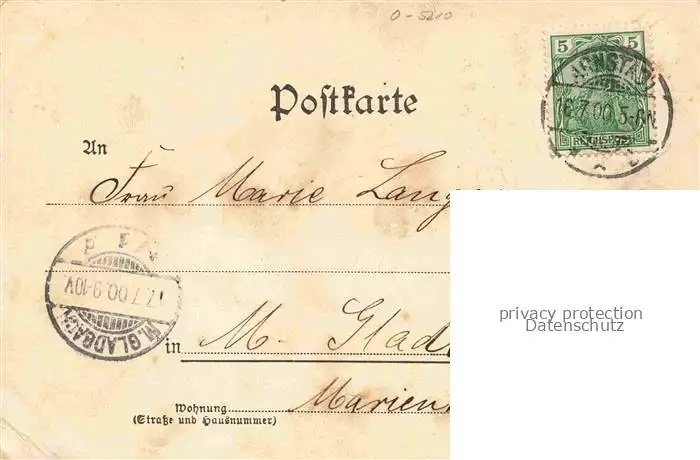 0-5210
5 5
ARNSTADT
16.7.00.5-6N
REICHSPOST
Postkarte
An
Frau Marie Lang
17.7.00.9-10V
M. GLADBACH
in M. Glad
Marien
Wohnung
(Straße und Hausnummer)
privacy protection
Datenschutz